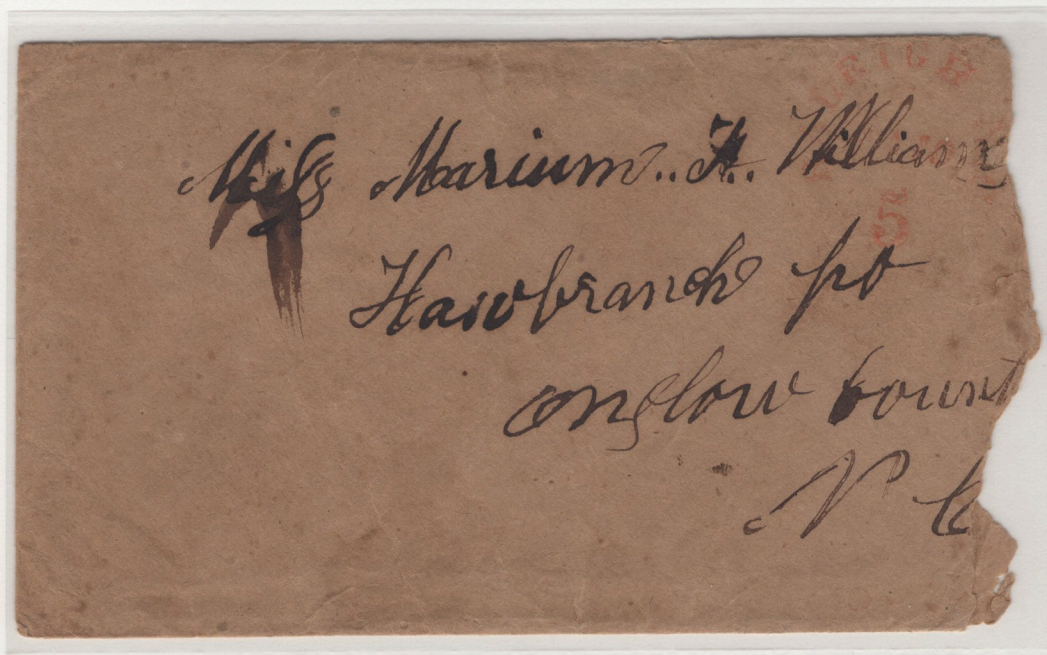 Miss Marium.. A. Williams
Hawbranch po
5
onslow Count
N C